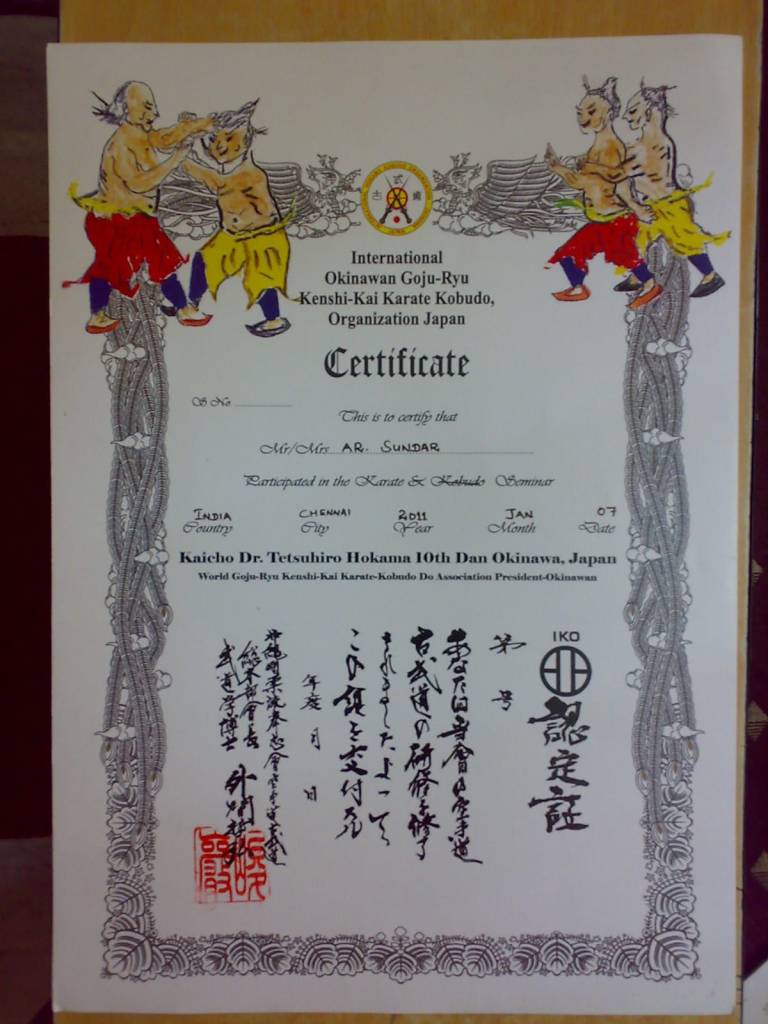 International
Okinawan Goju-Ryu
Kenshi-Kai Karate Kobudo,
Organization Japan
Certificate
S No
This is to certify that
Mr/Mrs AR. SUNDAR
Participated in the Karate & Kobudo Seminar
INDIA CHENNAI 2011 JAN 07
Country City Year Month Date
Kaicho Dr. Tetsuhiro Hokama 10th Dan Okinawa, Japan
World Goju-Ryu Kenshi-Kai Karate-Kobudo Do Association President-Okinawan
IKO
認定証
第 号
あなたは 空手道
古武道の研修を修了
されましたよって
この証を交付する
年度 月 日
沖縄剛柔流拳志會空手道古武道
総本部會長
武道学博士 外間哲弘